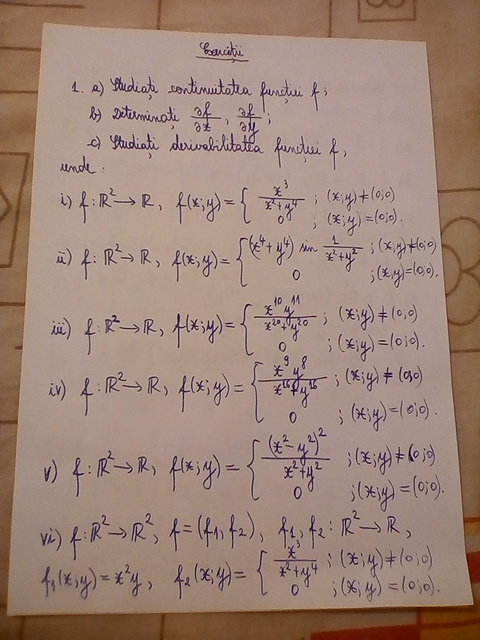 Exerciții
1. a) Studiați continuitatea funcției f;
b) Determinați ∂f/∂x, ∂f/∂y;
c) Studiați derivabilitatea funcției f,
unde:
i) f: ℝ² → ℝ, f(x;y) = { x³/(x²+y⁴) ; (x;y) ≠ (0;0)
0 ; (x;y) = (0;0).
ii) f: ℝ² → ℝ, f(x;y) = { (x⁴+y⁴) sin 1/(x²+y²) ; (x;y) ≠ (0;0)
0 ; (x;y) = (0;0).
iii) f: ℝ² → ℝ, f(x;y) = { x¹⁰y¹¹/(x²⁰+y²⁰) ; (x;y) ≠ (0;0)
0 ; (x;y) = (0;0).
iv) f: ℝ² → ℝ, f(x;y) = { x⁹y⁸/(x¹⁶+y¹⁶) ; (x;y) ≠ (0;0)
0 ; (x;y) = (0;0).
v) f: ℝ² → ℝ, f(x;y) = { (x²-y²)²/(x²+y²) ; (x;y) ≠ (0;0)
0 ; (x;y) = (0;0).
vi) f: ℝ² → ℝ², f = (f₁, f₂), f₁, f₂ : ℝ² → ℝ,
f₁(x;y) = x²y, f₂(x;y) = { x³/(x²+y⁴) ; (x;y) ≠ (0;0)
0 ; (x;y) = (0;0).